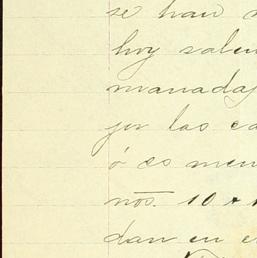 se han
hoy salen
manadas
por las ca
ó es men
nos. 10 +
dan en e